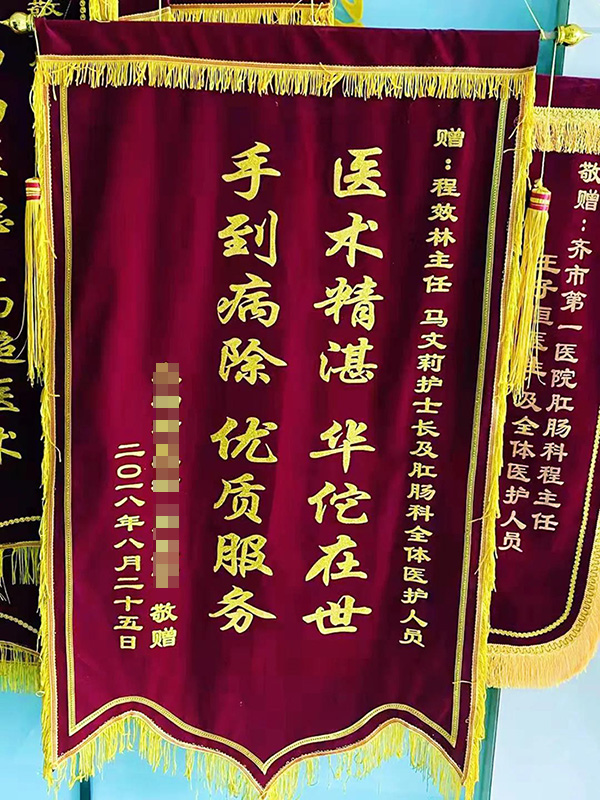 赠：程效林主任 马文莉护士长及肛肠科全体医护人员
医术精湛 华佗在世
手到病除 优质服务
敬赠
二〇一八年八月二十五日
敬赠：齐市第一医院肛肠科程主任
及全体医护人员
高
医术
敬